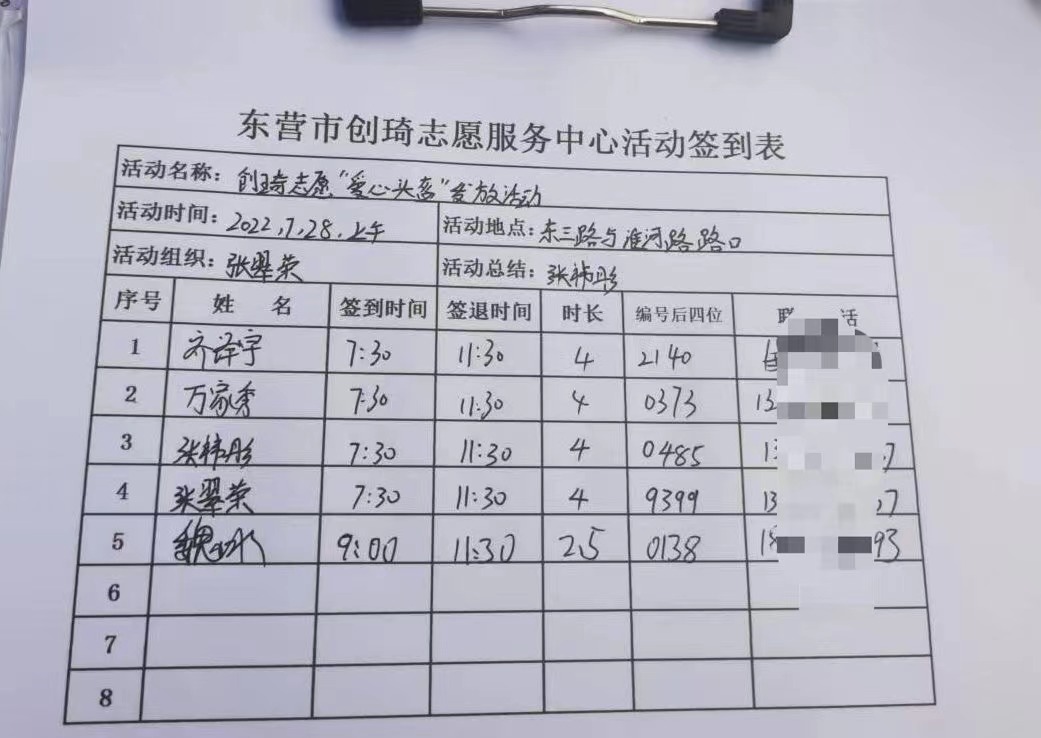 东营市创琦志愿服务中心活动签到表
活动名称：创琦志愿“爱心头盔”发放活动
活动时间：2022.7.28.上午 活动地点：东三路与淮河路路口
活动组织：张翠荣 活动总结：张祎彤
序号 姓名 签到时间 签退时间 时长 编号后四位 联 话
1 齐泽宇 7:30 11:30 4 2140
2 万家秀 7:30 11:30 4 0373 13
3 张祎彤 7:30 11:30 4 0485 13 7
4 张翠荣 7:30 11:30 4 9399 13 7
5 9:00 11:30 2.5 0138 18 93
6
7
8